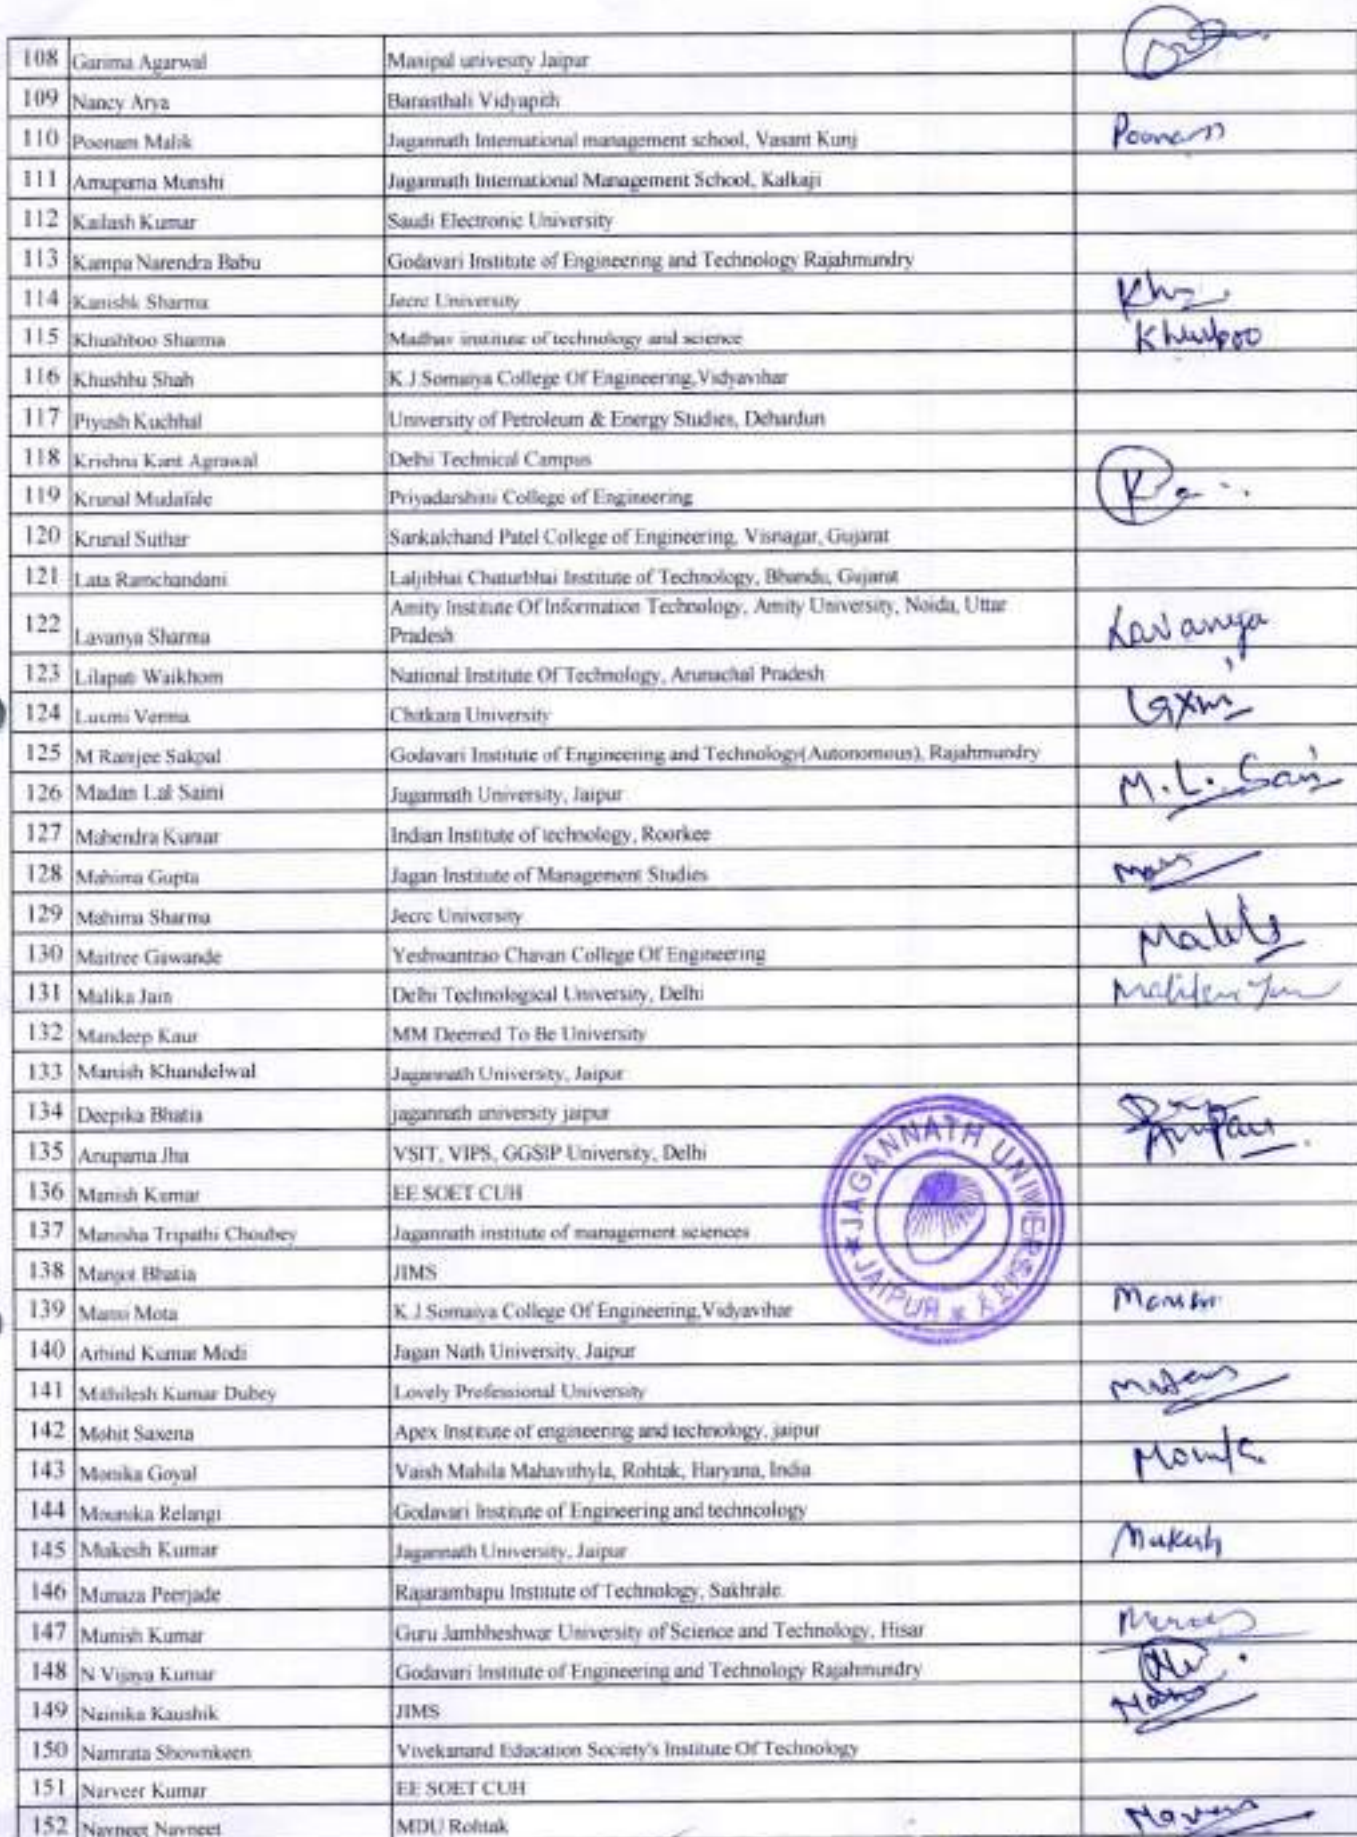 108 Garima Agarwal Manipal univesity Jaipur
109 Nancy Arya Banasthali Vidyapith
110 Poonam Malik Jagannath International management school, Vasant Kunj Poonam
111 Anupama Munshi Jagannath International Management School, Kalkaji
112 Kailash Kumar Saudi Electronic University
113 Kampa Narendra Babu Godavari Institute of Engineering and Technology Rajahmundry
114 Kanishk Sharma Jecrc University
115 Khushboo Sharma Madhav institute of technology and science Khushboo
116 Khushbu Shah K.J.Somaiya College Of Engineering,Vidyavihar
117 Piyush Kuchhal University of Petroleum & Energy Studies, Dehardun
118 Krishna Kant Agrawal Delhi Technical Campus
119 Krunal Mudafale Priyadarshini College of Engineering
120 Krunal Suthar Sankalchand Patel College of Engineering, Visnagar, Gujarat
121 Lata Ramchandani Laljibhai Chaturbhai Institute of Technology, Bhandu, Gujarat
122 Lavanya Sharma Amity Institute Of Information Technology, Amity University, Noida, Uttar
Pradesh Lavanya
123 Lilapati Waikhom National Institute Of Technology, Arunachal Pradesh
124 Luxmi Verma Chitkara University
125 M Ramjee Sakpal Godavari Institute of Engineering and Technology(Autonomous), Rajahmundry
126 Madan Lal Saini Jagannath University, Jaipur M.L. Saini
127 Mahendra Kumar Indian Institute of technology, Roorkee
128 Mahima Gupta Jagan Institute of Management Studies
129 Mahima Sharma Jecrc University
130 Maitree Gawande Yeshwantrao Chavan College Of Engineering
131 Malika Jain Delhi Technological University, Delhi
132 Mandeep Kaur MM Deemed To Be University
133 Manish Khandelwal Jagannath University, Jaipur
134 Deepika Bhatia jagannath university jaipur
135 Anupama Jha VSIT, VIPS, GGSIP University, Delhi
136 Manish Kumar EE SOET CUH
137 Manisha Tripathi Choubey Jagannath institute of management sciences
138 Manjot Bhatia JIMS
139 Mansi Mota K.J.Somaiya College Of Engineering,Vidyavihar
140 Arbind Kumar Modi Jagan Nath University, Jaipur
141 Mithilesh Kumar Dubey Lovely Professional University
142 Mohit Saxena Apex Institute of engineering and technology, jaipur
143 Monika Goyal Vaish Mahila Mahavithyla, Rohtak, Haryana, India
144 Mounika Relangi Godavari Institute of Engineering and techncology
145 Mukesh Kumar Jagannath University, Jaipur Mukesh
146 Munaza Peerjade Rajarambapu Institute of Technology, Sakhrale
147 Munish Kumar Guru Jambheshwar University of Science and Technology, Hisar
148 N Vijaya Kumar Godavari Institute of Engineering and Technology Rajahmundry
149 Nainika Kaushik JIMS
150 Namrata Shownkeen Vivekanand Education Society's Institute Of Technology
151 Narveer Kumar EE SOET CUH
152 Navneet Navneet MDU Rohtak
JAGANNATH UNIVERSITY
JAIPUR